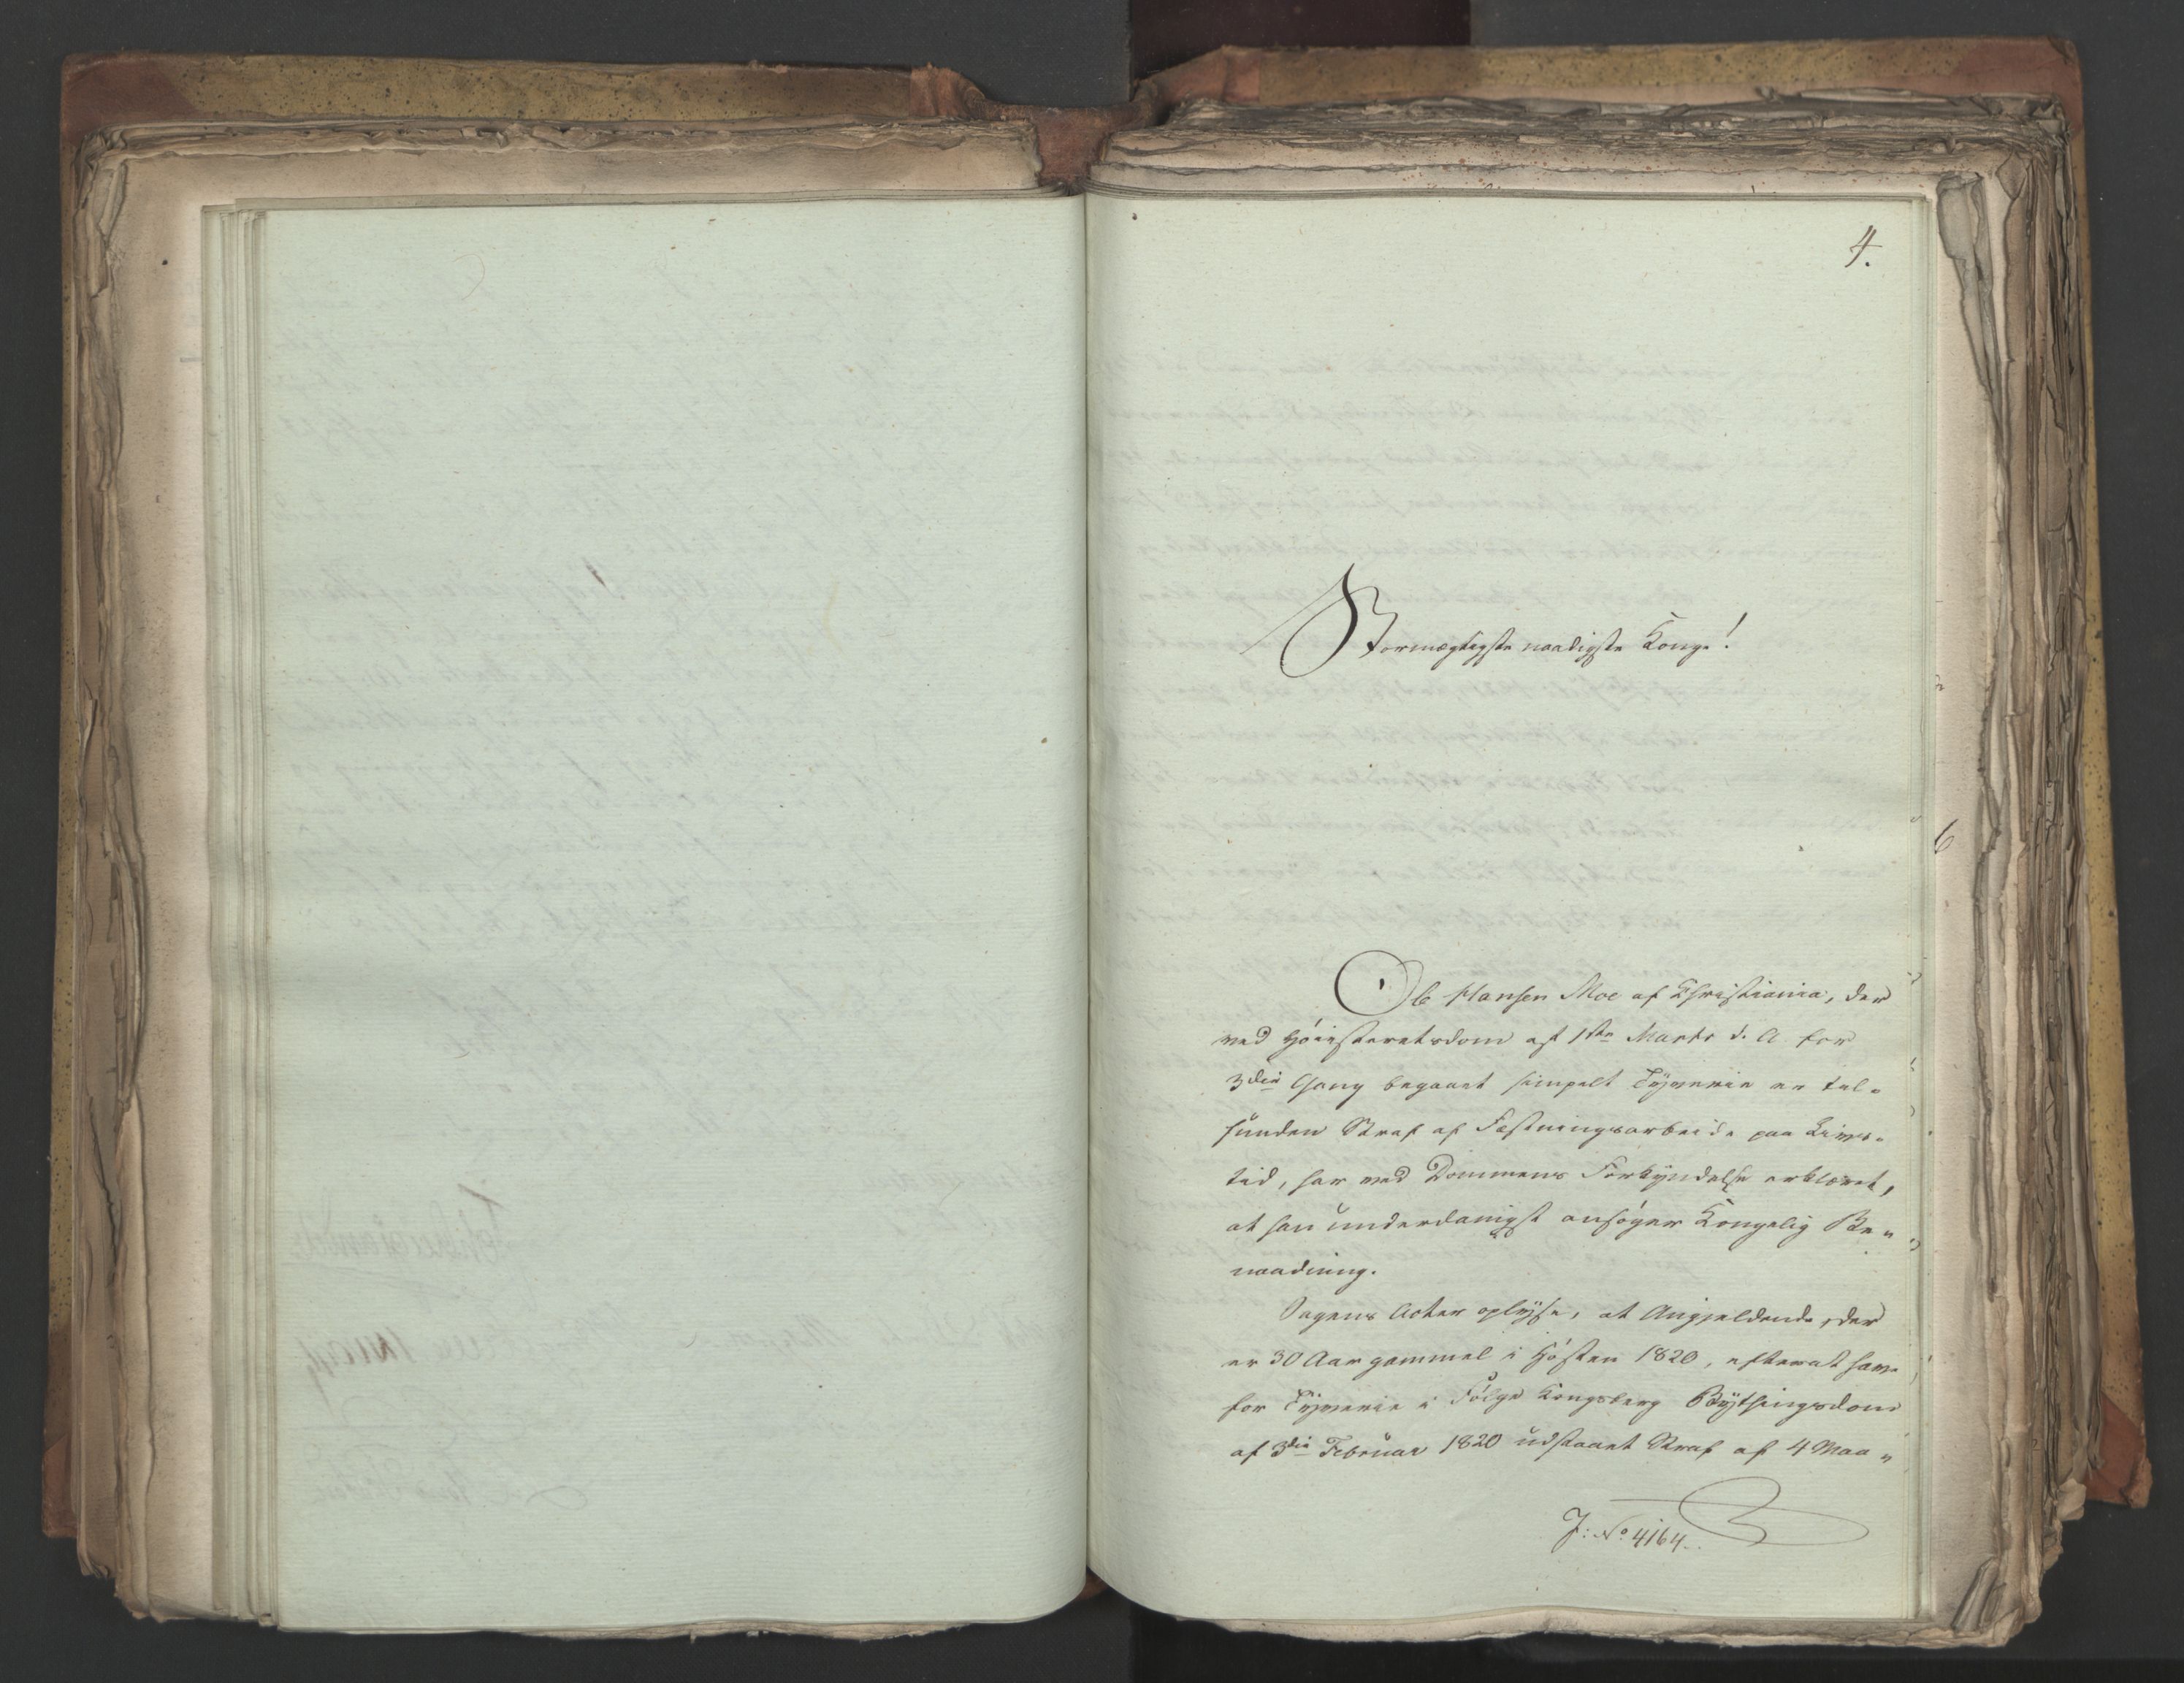 4.
Stormægtigste naadigste Konge!
Ole Hansen Moe af Christiania, der
ved Høiesteretsdom af 1ste Marts d. A. for
3die Gang begaaet simpelt Tyverie er fal-
funden Straf af Fæstningsarbeide paa Livs-
tid, har ved Dommens Forkyndelse erklæret,
at han underdanigst ansøger Kongelig Be-
naadning.
Sagens Acter oplyse, at Angjeldende, der
er 30 Aar gammel i Høsten 1820, efterat have
for Tyverie i Følge Kongsberg Bythingsdom
af 3die Februar 1820 udstaaet Straf af 4 Maa-
J: No 4164.